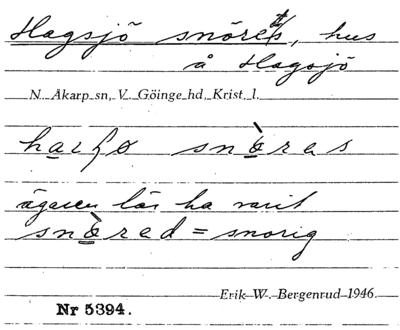 Hagsjö snörets, hus
å Hagsjö
N. Åkarp sn, V. Göinge hd, Krist. l.
snò̲ras
ägaren lär ha varit
snò̲rad = snorig
Erik W. Bergenrud 1946.
Nr 5394.